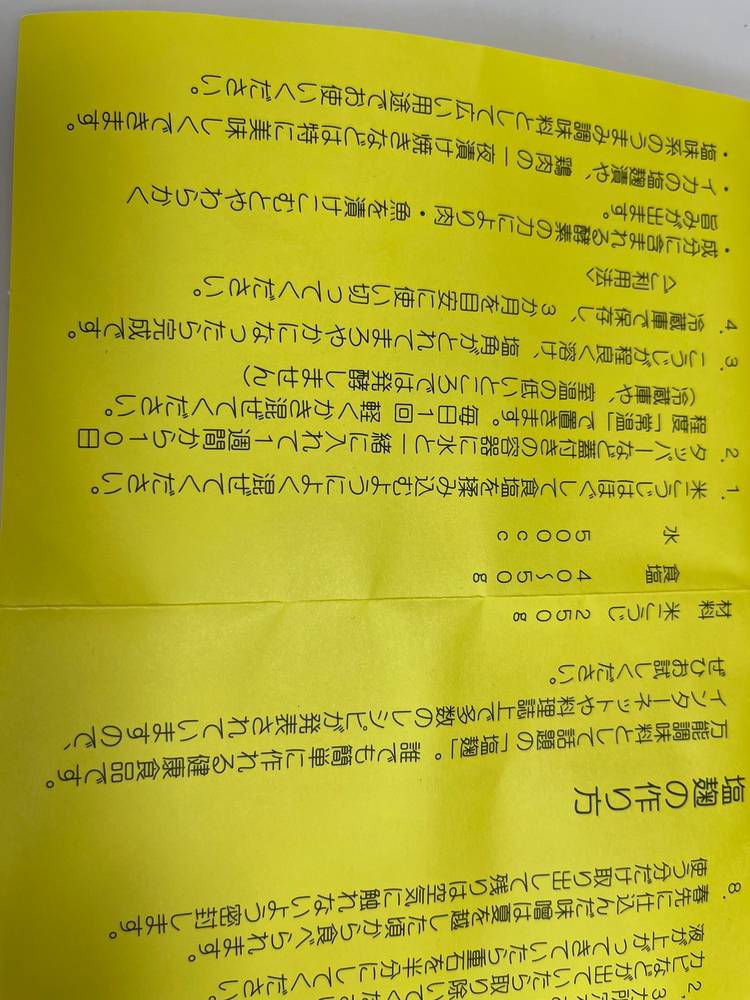 カビなどが出ていたら取り除いてく
液が上がってきていたら重石を半分にしてください。
８．春先に仕込んだ味噌は夏を越した頃から食べられます。
使う分だけ取り出して残りは空気に触れないよう密封します。
塩麹の作り方
万能調味料として話題の「塩麹」。誰でも簡単に作れる健康食品です。
インターネットや料理誌上で多数のレシピが発表されていますので、
ぜひお試しください。
材料　米こうじ　２５０ｇ
食塩　４０～５０ｇ
水　５００ｃｃ
１．米こうじはほぐして食塩を揉み込むようによく混ぜてください。
２．タッパーなど蓋付きの容器に水と一緒に入れて１週間から１０日
程度「常温」で置きます。毎日１回軽くかき混ぜてください。
（冷蔵庫や、室温の低いところでは発酵しません）
３．こうじが程良く溶け、塩角がとれてまろやかになったら完成です。
４．冷蔵庫で保存し、３カ月を目安に使い切ってください。
＜ご利用法＞
・成分に含まれる酵素の力により肉・魚を漬けこむとやわらかく
旨みが出ます。
・イカの塩麹漬や、鶏肉の一夜漬け焼きなどは特に美味しくできます。
・塩味系のうまみ調味料として広い用途でお使いください。